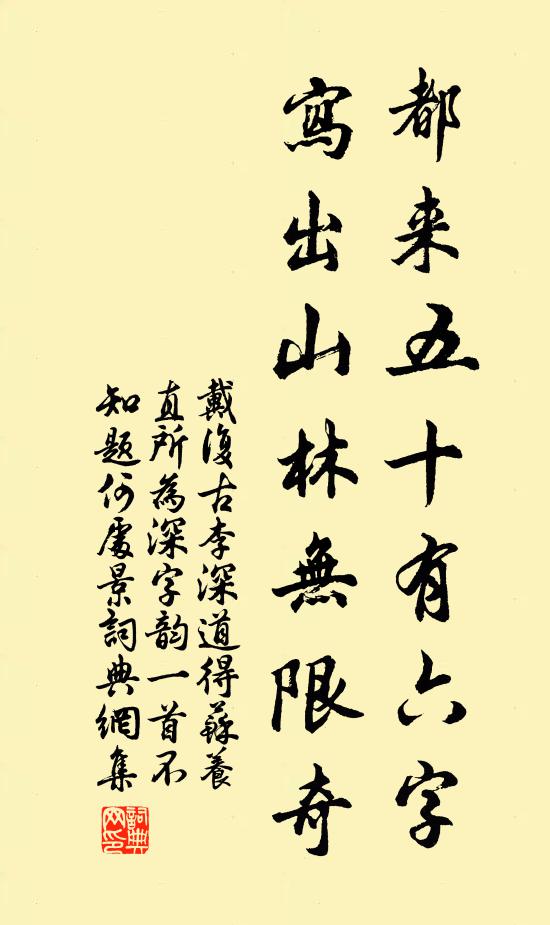 都来五十有六字
寫出山林無限奇
戴復古李深道得蘇養
直所為深字韵一首不
知題何處景詞典網集
詞典
网印